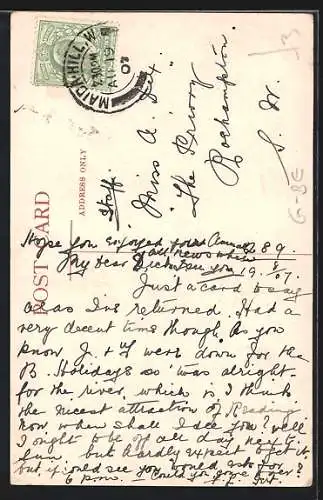 MAIDA HILL. W
7.30 PM
AU 19
07
POST CARD
ADDRESS ONLY
Staff.
Miss A. Fox.
"The Priory
Roehampton.
S. W.
Hope you enjoyed your
289.
My dear
19. 8. 07.
Just a card to say
I've returned. Had a
very decent time though. As you
know, J. & I were down for the
B. Holidays so 'twas alright
for the river, which is I think
the nicest attraction of Reading
Now, when shall I see you? Well
I ought to be off all day next
Sun. but hardly expect to get it,
but if could see you would ask for
6 p.m. Could you come over?